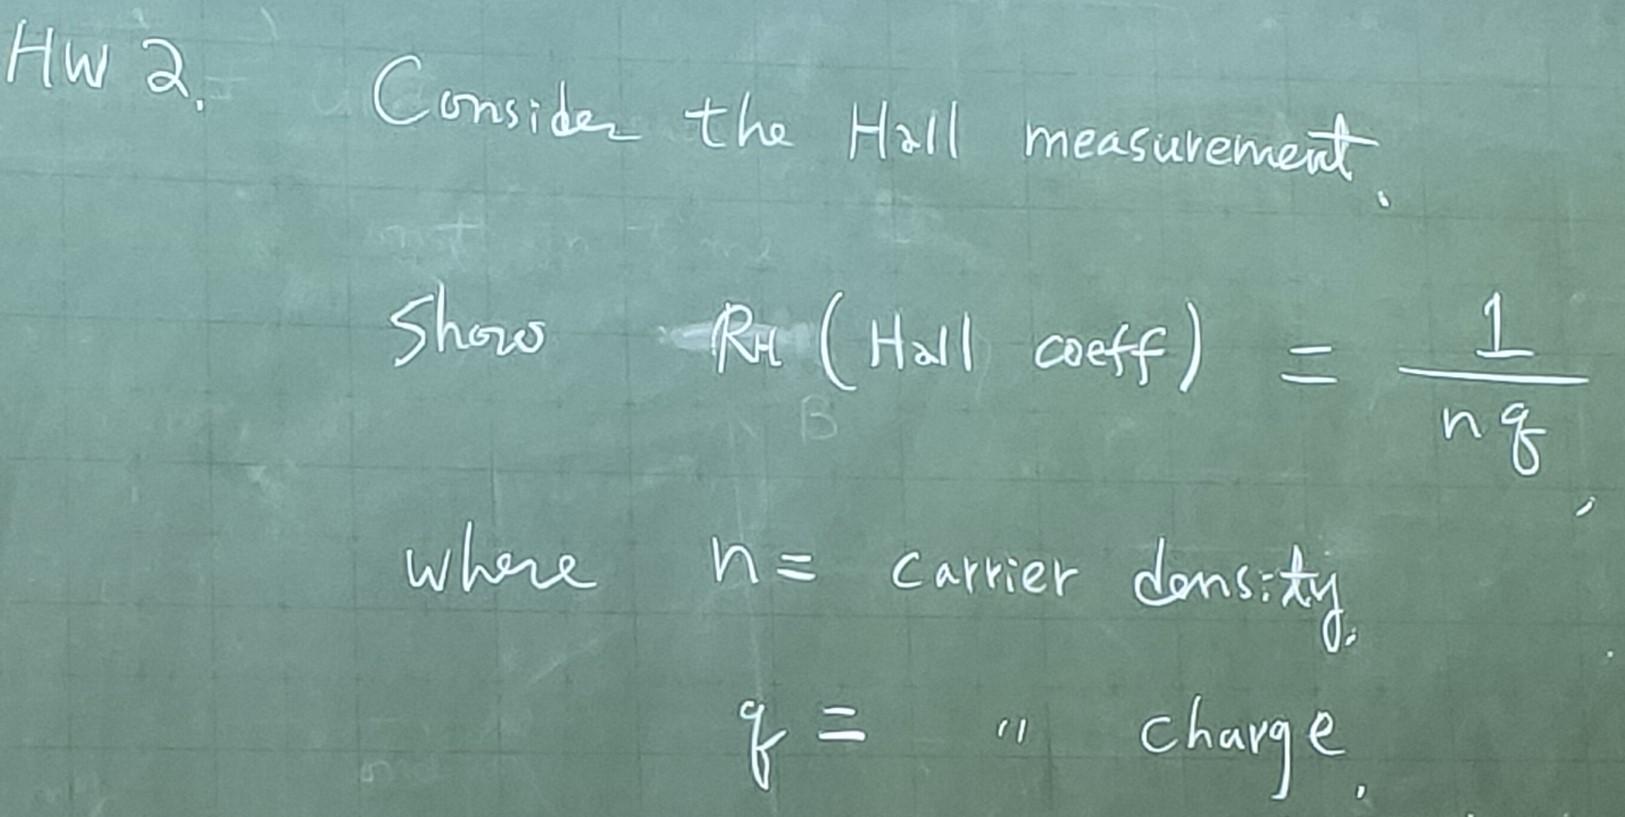 HW 2. Consider the Hall measurement.
Show RH (Hall coeff) = 1 / nq,
where n = carrier density.
q = " charge.